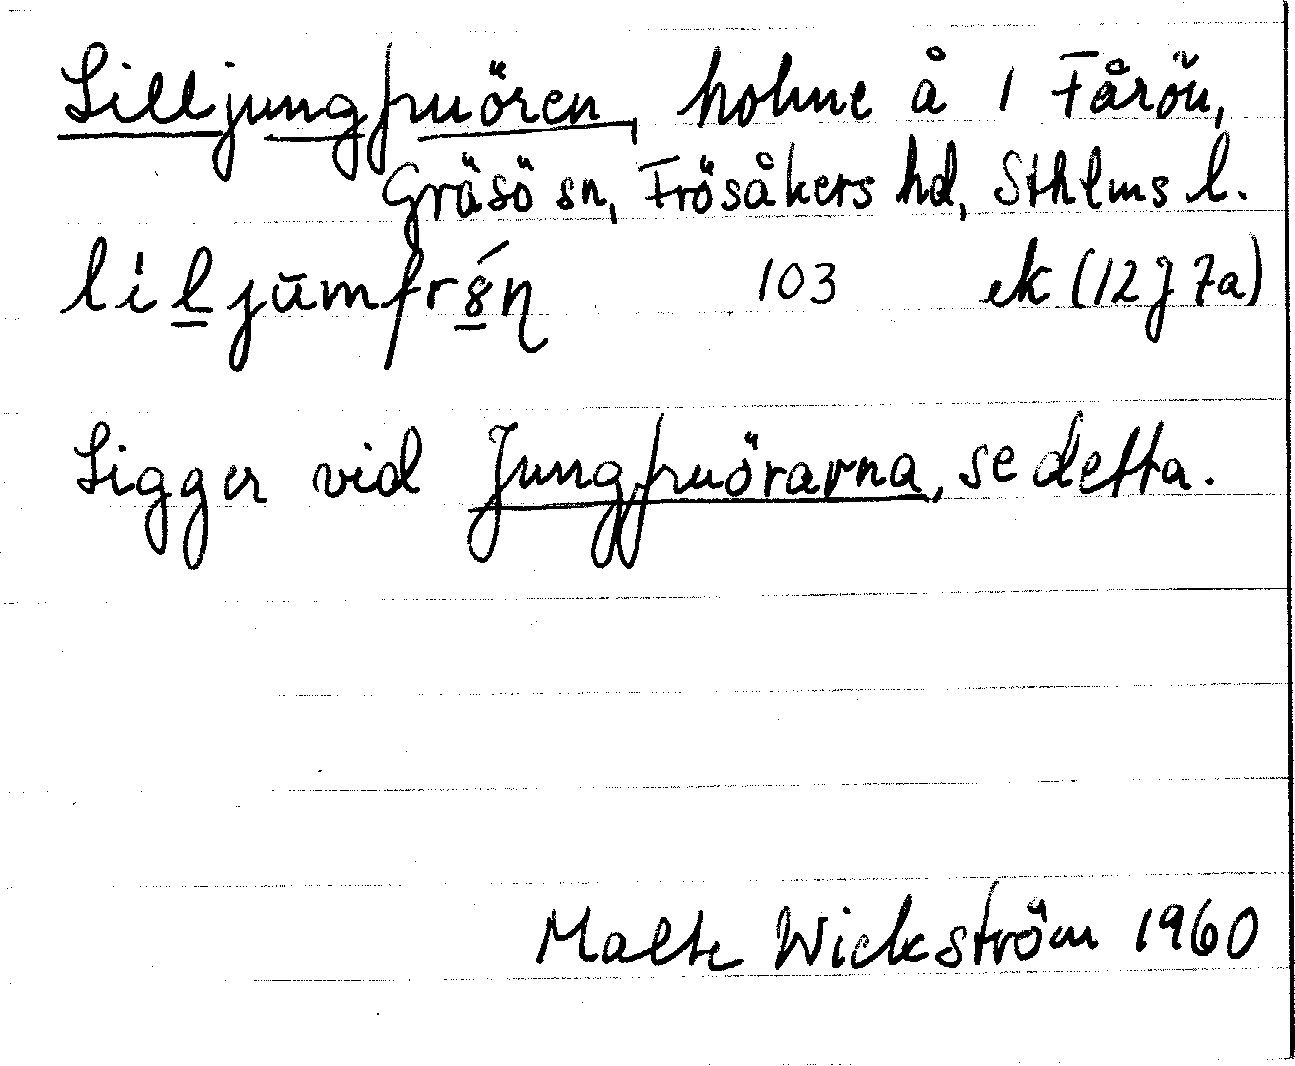 Lilljungfruören, holme å 1 Fårön,
Gräsö sn, Frösåkers hd, Sthlms l.
103 ek (12 J 7a)
Ligger vid Jungfruörarna, se detta.
Malte Wickström 1960